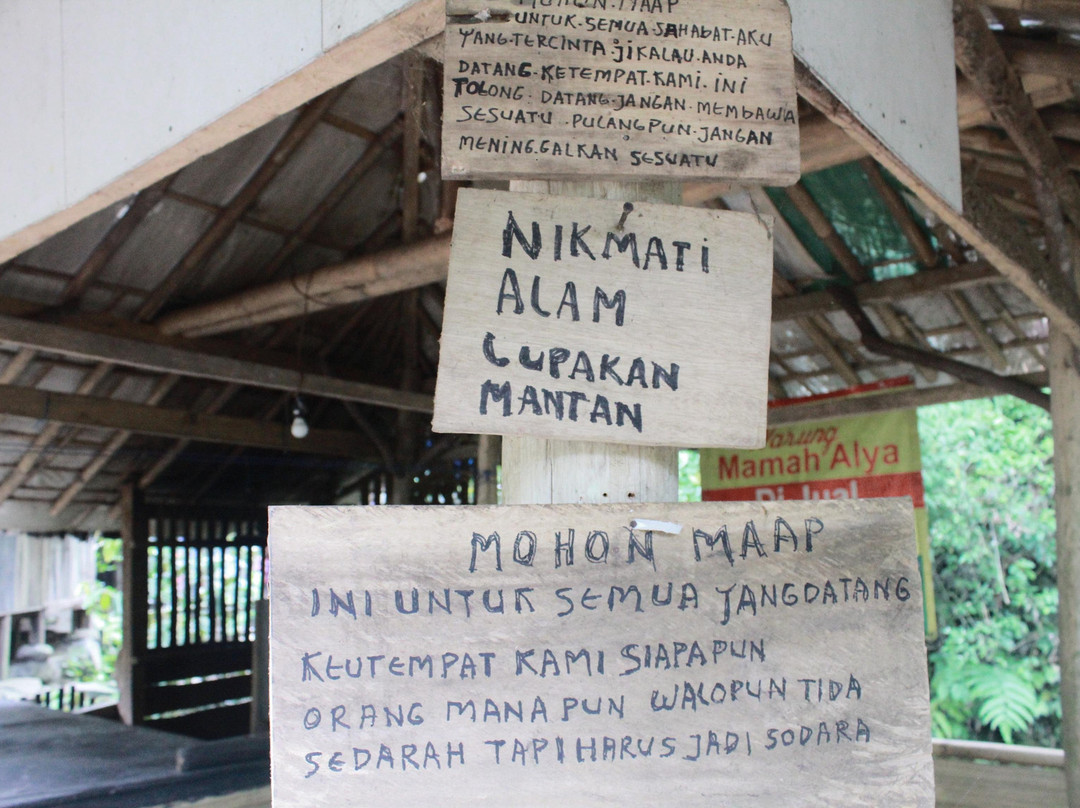 MOHON.MAAP
UNTUK.SEMUA.SAHABAT.AKU
YANG.TERCINTA JIKALAU.ANDA
DATANG.KETEMPAT.KAMI.INI
TOLONG.DATANG.JANGAN.MEMBAWA
SESUATU.PULANGPUN.JANGAN
MENING.GALKAN SESUATU
NIKMATI
ALAM
LUPAKAN
MANTAN
Warung
Mamah Alya
Di Jual
MOHON MAAP
INI UNTUK SEMUA YANGDATANG
KEUTEMPAT KAMI SIAPAPUN
ORANG MANA PUN WALOPUN TIDA
SEDARAH TAPI HARUS JADI SODARA